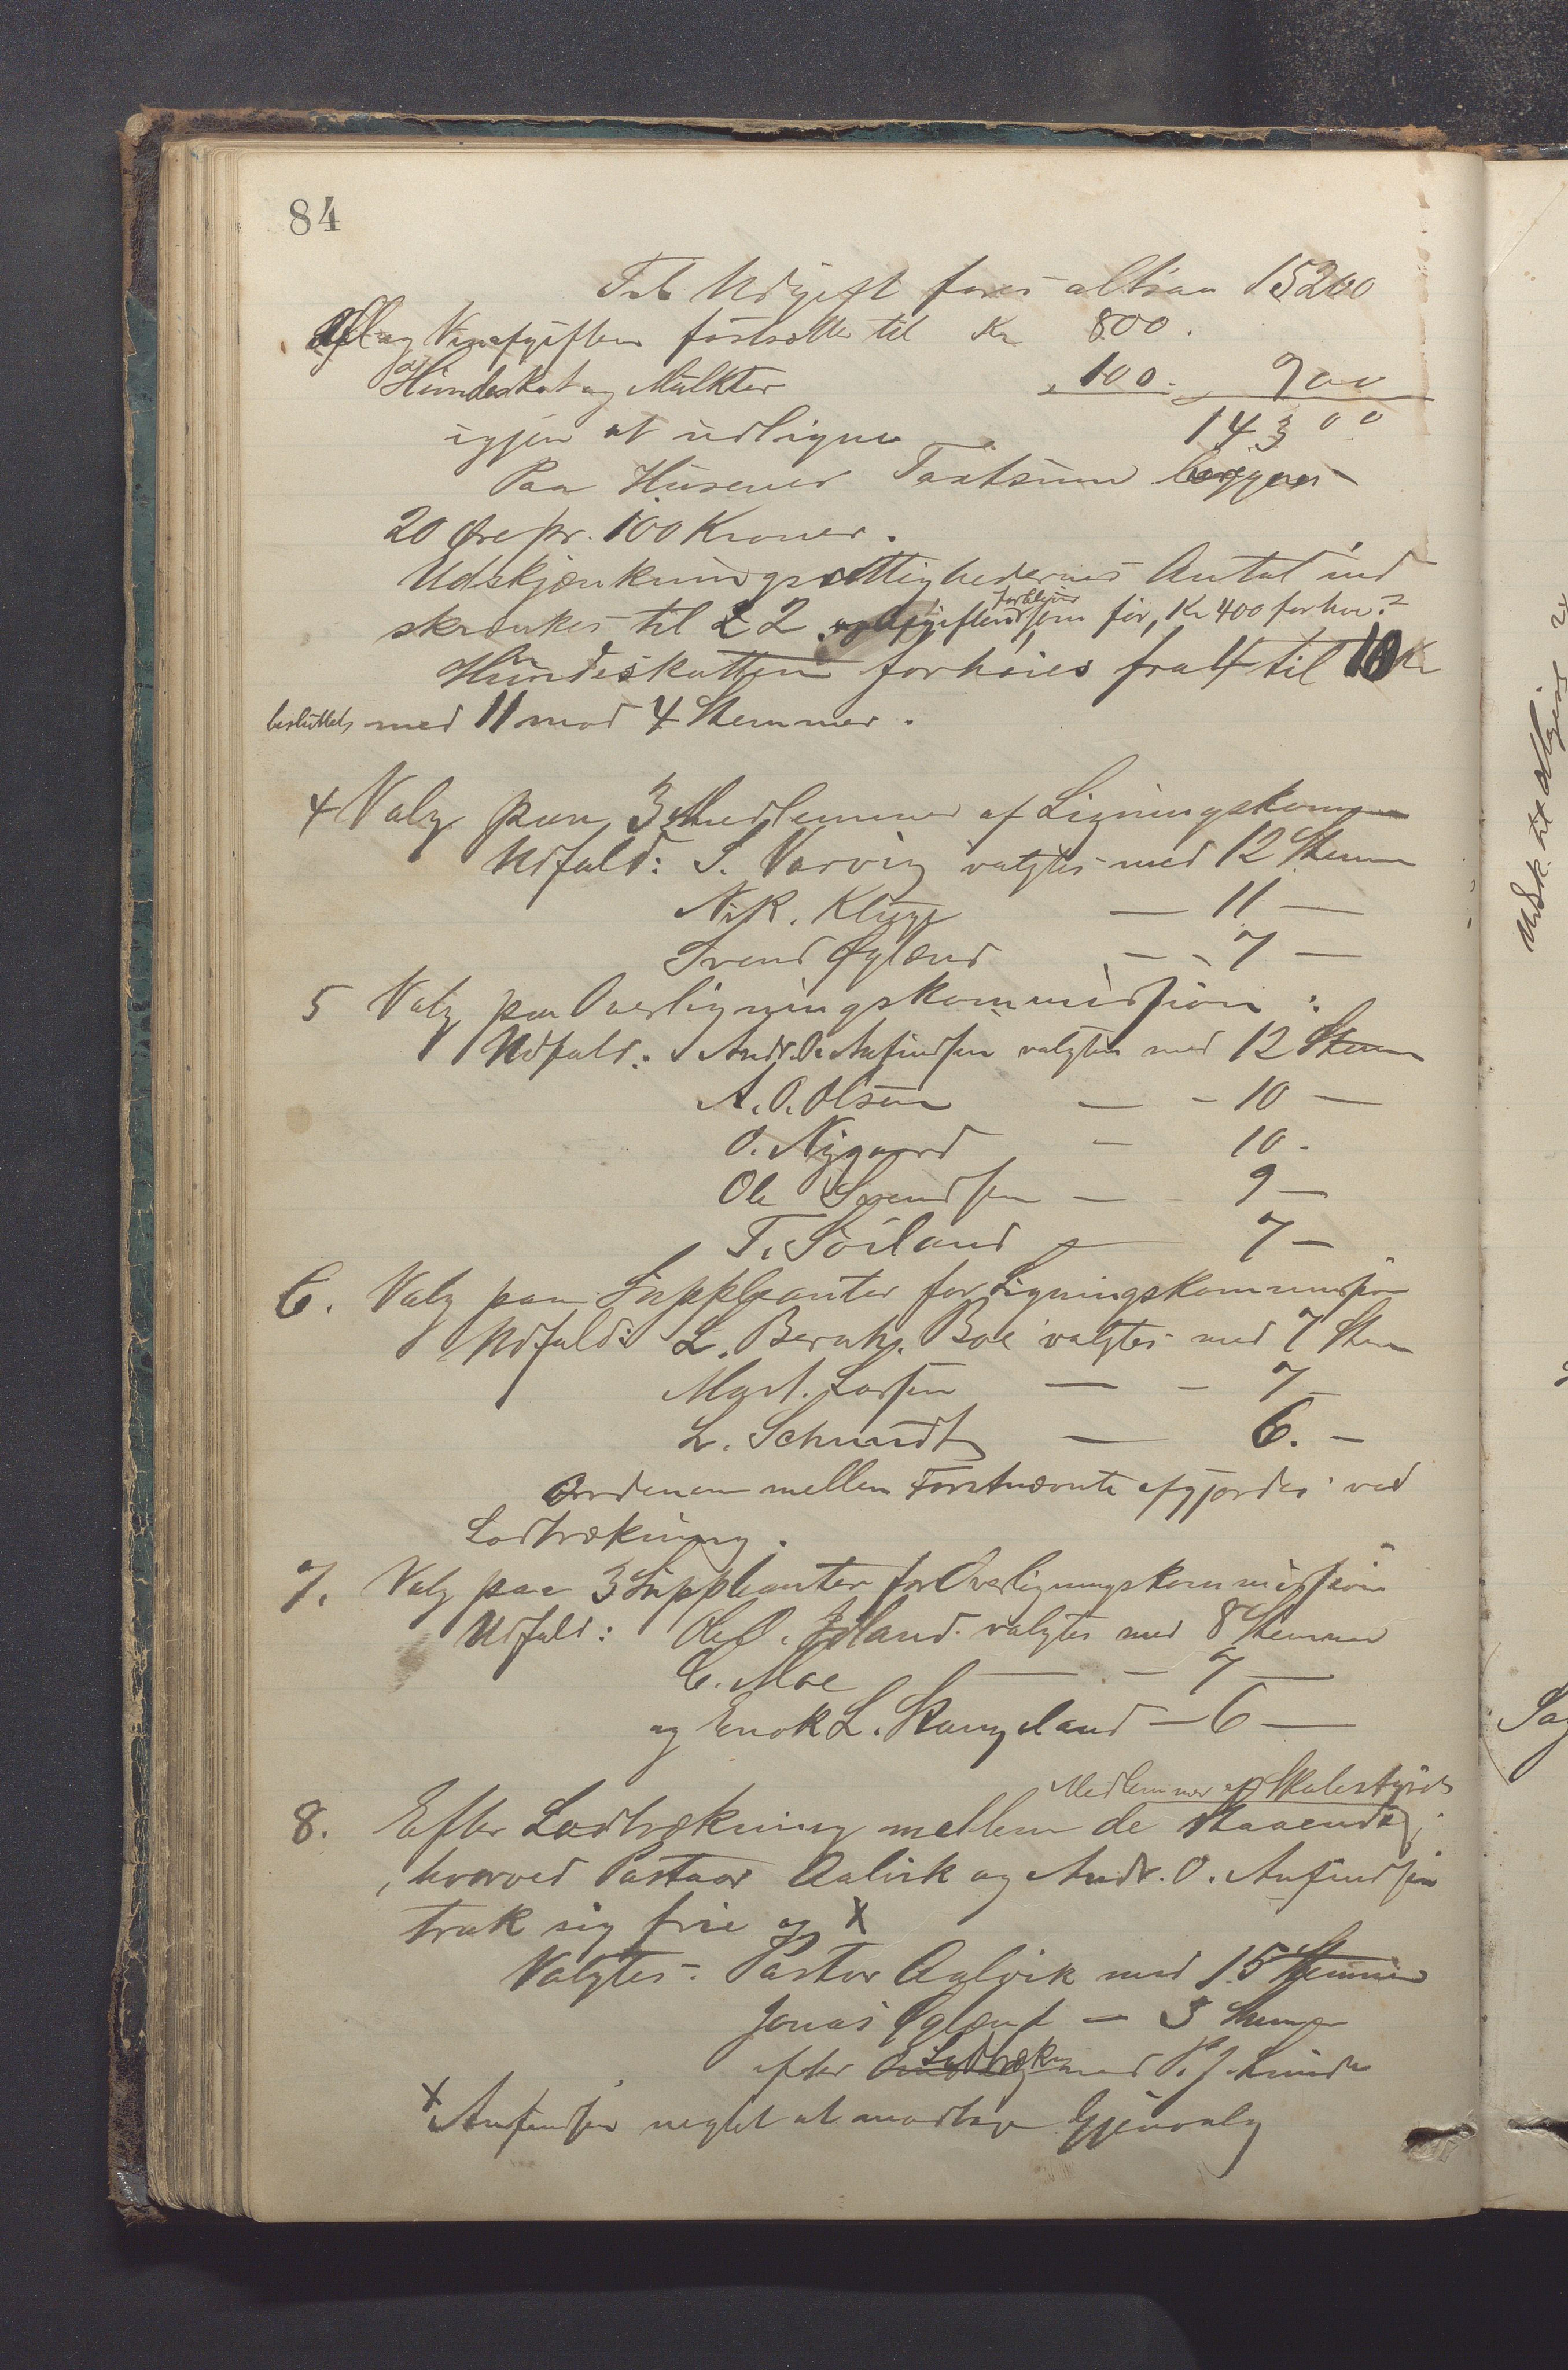 84
Til Udgift føres altsaa 15200
Øl og Vinafgiften fastsættes til Kr 800.
Hundeskat og Mulkter " 100. " 900
igjen at udligne 14300
Paa Husenes Taxtsum lægges
20 Øre pr. 100 Kroner.
Udskjænkningsrettighedernes Antal ind
skrænkes til 2 og Afgiften forbliver som før, Kr 400 for hver
Hundeskatten forhøies fra 4 til 10 Kr
besluttets med 11 mod 4 Stemmer.
4 Valg paa 3 Medlemmer af Ligningskom
Udfald: S. Varvig valgtes med 12 Stemm
N. K. Klugge — 11 —
Svend Øglænd — - 7 —
5 Valg paa Overligningskommission:
Udfald: Andr. O. Anfindsen valgtes med 12 Stemm
A. O. Olsen — - 10 —
O. Nygaard - 10 -
Ole Svendsen — 9 —
T. Soiland — 7 —
6. Valg paa Suppleanter for Ligningskommission
Udfald: L. Bernh. Boe valgtes med 7 Stem
Mart. Larsen — - 7 -
L. Schmidt — 6. —
Ordenen mellem Førstnævnte afgjordes ved
Lodtrækning.
7. Valg paa 3 Suppleanter for Overligningskommission
Udfald: Ole O. Idland valgtes med 8 Stemmer
C. Moe — - 7 —
og Enok L. Stangeland — 6 —
Medlemmer af Skolestyret
8. Efter Lodtrækning mellem de staaende
, hvorved Pastor Aalvik og Andr. O. Anfindsen
trak sig frie og X
Valgtes: Pastor Aalvik med 15 Stemmer
Jonas Øglænd — 3 Stemmer
efter Lodtrækn med P. J. Lunde
X Anfindsen negtet at modtage Gjenvalg
Udsk. til